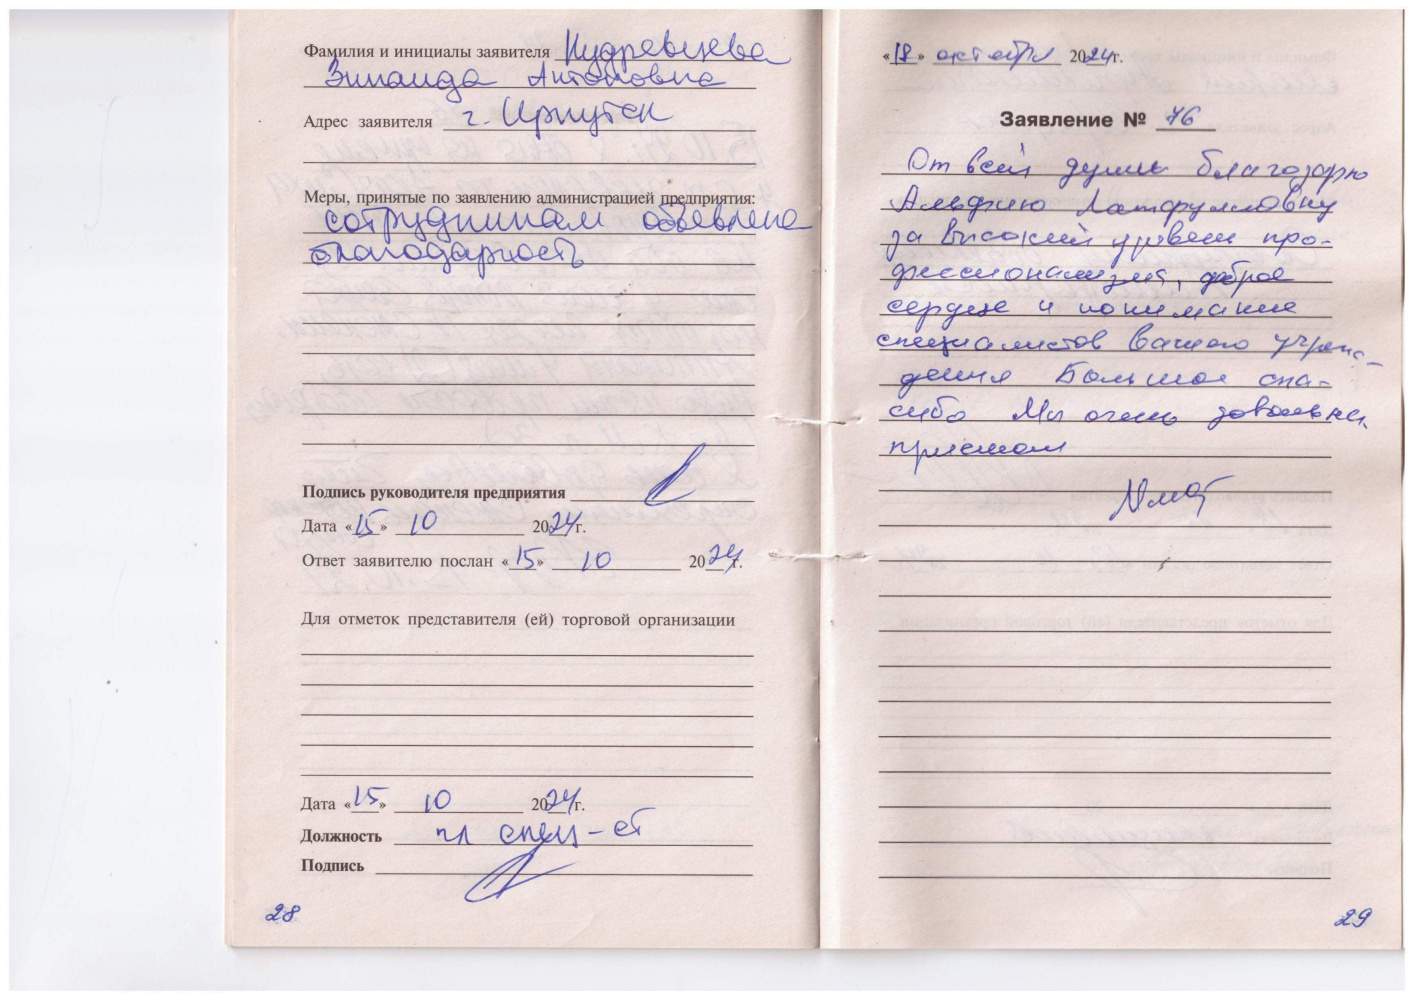 Фамилия и инициалы заявителя Кудревцева
Зинаида Антоновна
Адрес заявителя г. Иркутск
Меры, принятые по заявлению администрацией предприятия:
сотрудникам объявлена
благодарность
Подпись руководителя предприятия
Дата «15» 10 2024г.
Ответ заявителю послан «15» 10 2024 г.
Для отметок представителя (ей) торговой организации
Дата «15» 10 2024 г.
Должность гл спец-ст
Подпись
28
«18» октября 2024г.
Заявление № 76
От всей души благодарю
Альфию
за высокий уровень про-
фессионализма, доброе
сердце и понимание
специалистов вашего учреж-
дения Большое спа-
сибо Мы очень довольны
приемом
29